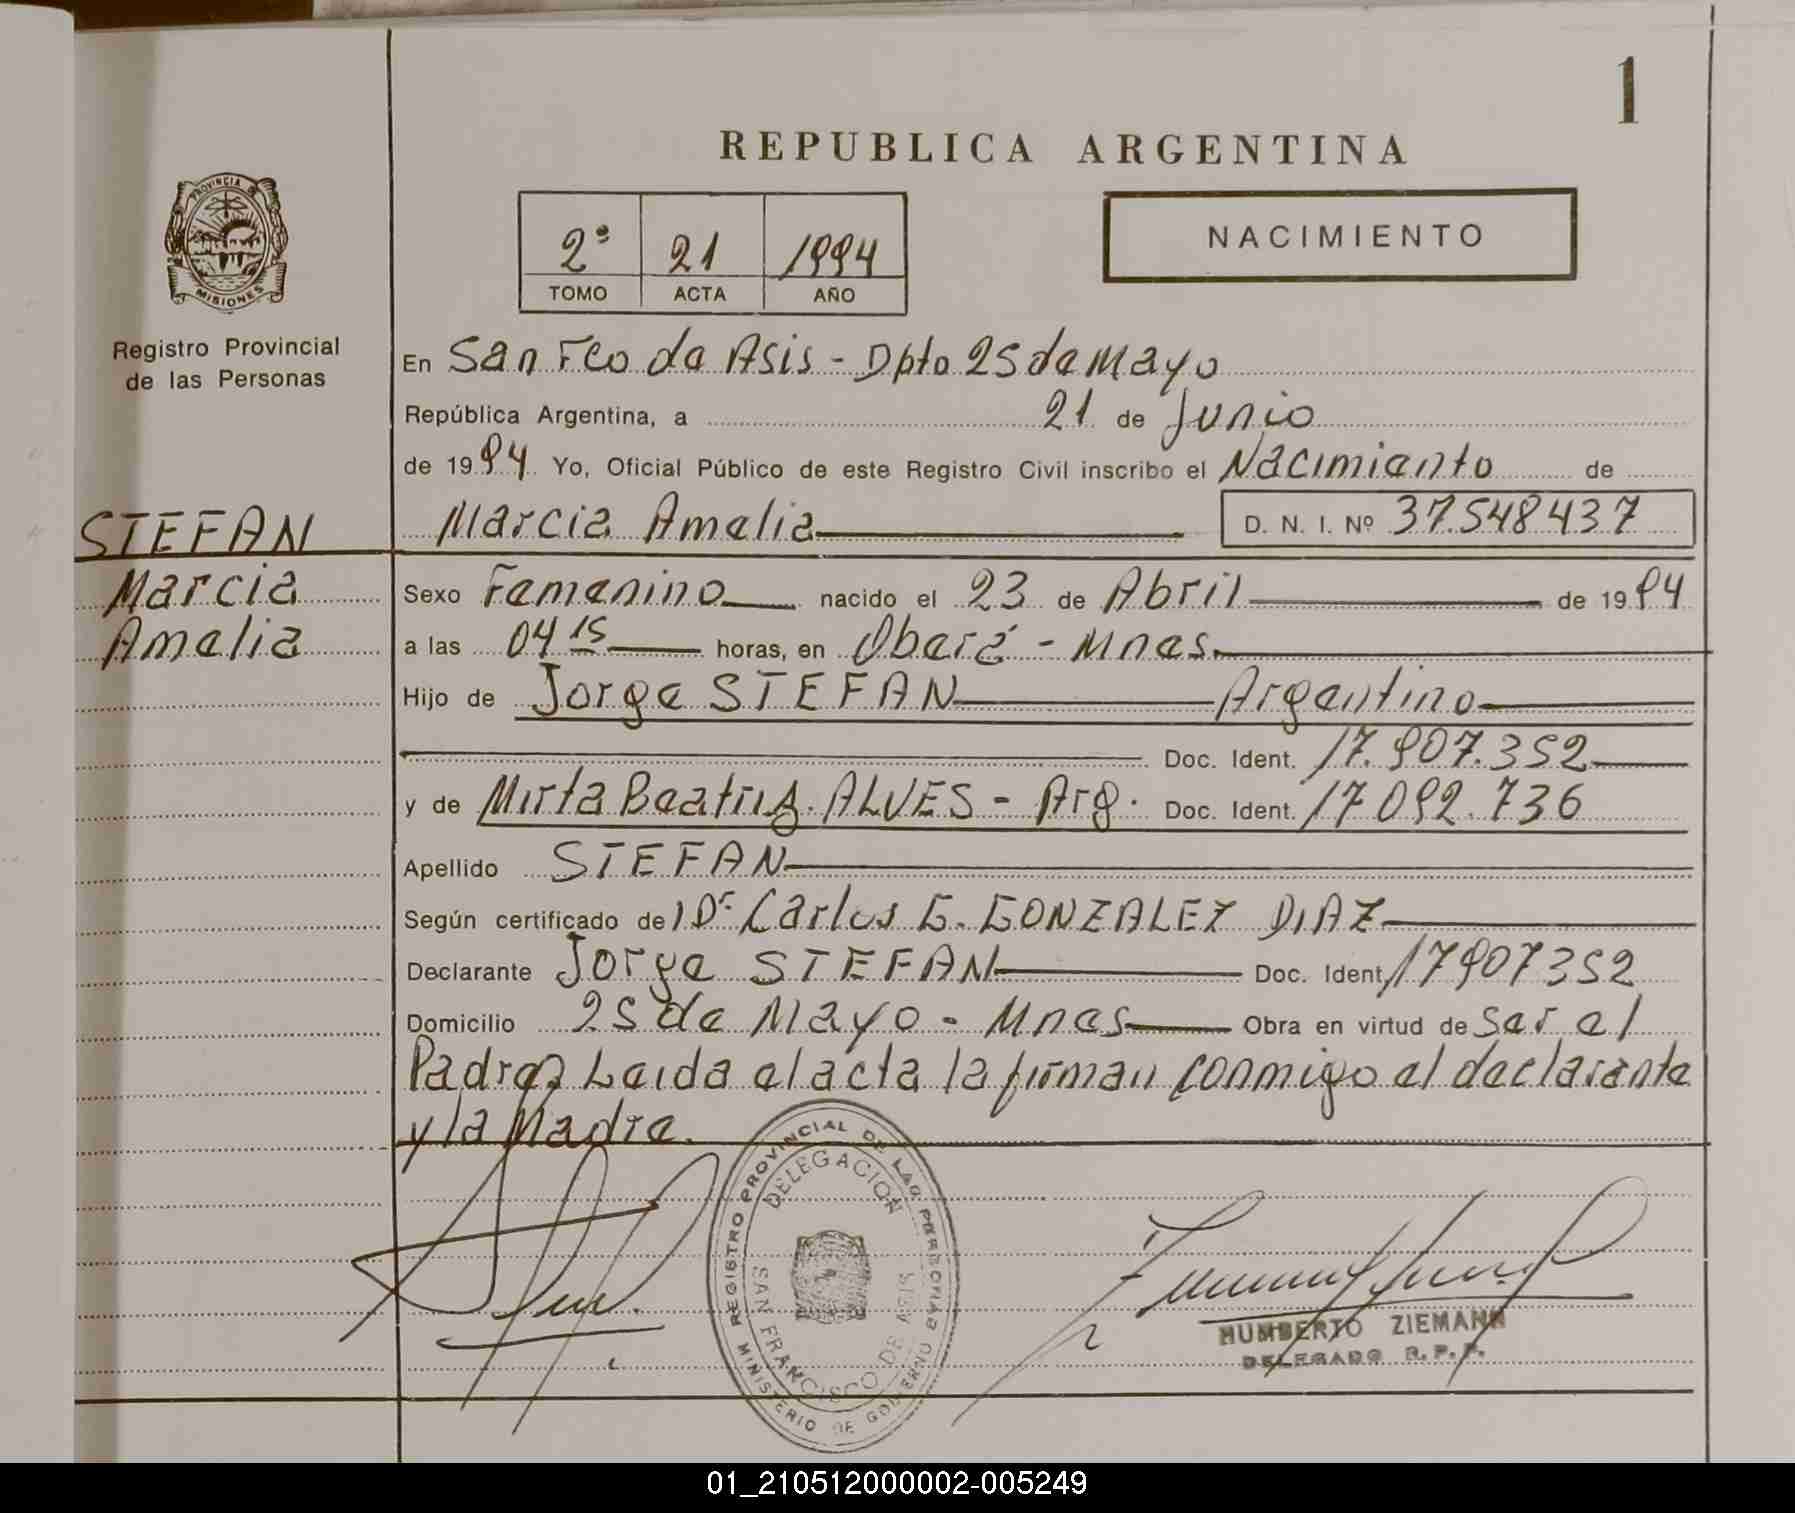 1
REPUBLICA ARGENTINA
PROVINCIA DE
MISIONES
Registro Provincial
de las Personas
2º 21 1994
TOMO ACTA AÑO
NACIMIENTO
En San Fco de Asis - Dpto 25 de Mayo
República Argentina, a 21 de Junio
de 1994 Yo, Oficial Público de este Registro Civil inscribo el Nacimiento de
Marcia Amelia D. N. I. Nº 37.548437
STEFAN
Marcia
Amelia
Sexo Femenino nacido el 23 de Abril de 1994
a las 04 15 horas, en Oberá - Mnes
Hijo de Jorge STEFAN Argentino
Doc. Ident. 17.907.352
y de Mirta Beatriz ALVES - Arg. Doc. Ident. 17 092.736
Apellido STEFAN
Según certificado de Dr Carlos G. GONZALEZ DIAZ
Declarante Jorge STEFAN Doc. Ident. 17907352
Domicilio 25 de Mayo - Mnes Obra en virtud de ser el
Padre Leida el acta la firman conmigo el declarante
y la Madre.
REGISTRO PROVINCIAL DE LAS PERSONAS
DELEGACION
SAN FRANCISCO DE ASIS
MINISTERIO DE GOBIERNO
HUMBERTO ZIEMANN
DELEGADO R.P.P.
01_210512000002-005249